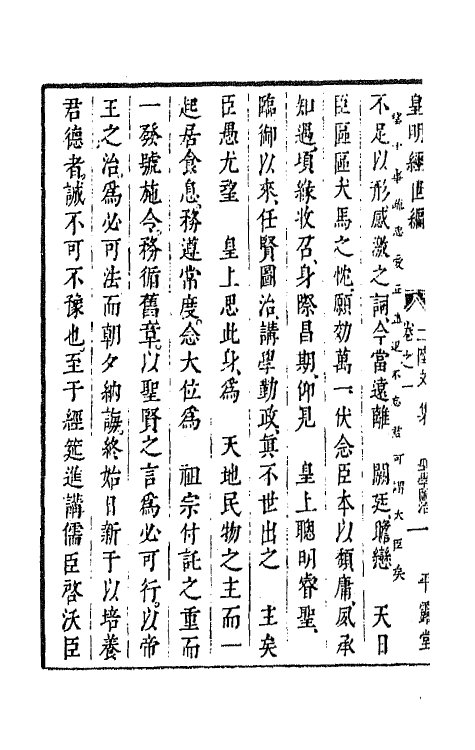 皇明經世編 卷之一 二陸文集 聖學疏 一 平露堂
不足以形感激之詞今當遠離 闕廷瞻戀 天日
臣區區犬馬之忱願効萬一伏念臣本以頹庸夙承
知遇頃緣收召身際昌期仰見 皇上聰明睿聖
臨御以來任賢圖治講學勤政真不世出之 主矣
臣愚尤望 皇上思此身為 天地民物之主而一
起居食息務遵常度念大位為 祖宗付託之重而
一發號施令務循舊章以聖賢之言為必可行以帝
王之治為必可法而朝夕納誨終始日新于以培養
君德者誠不可不豫也至于經筵進講儒臣啓沃臣